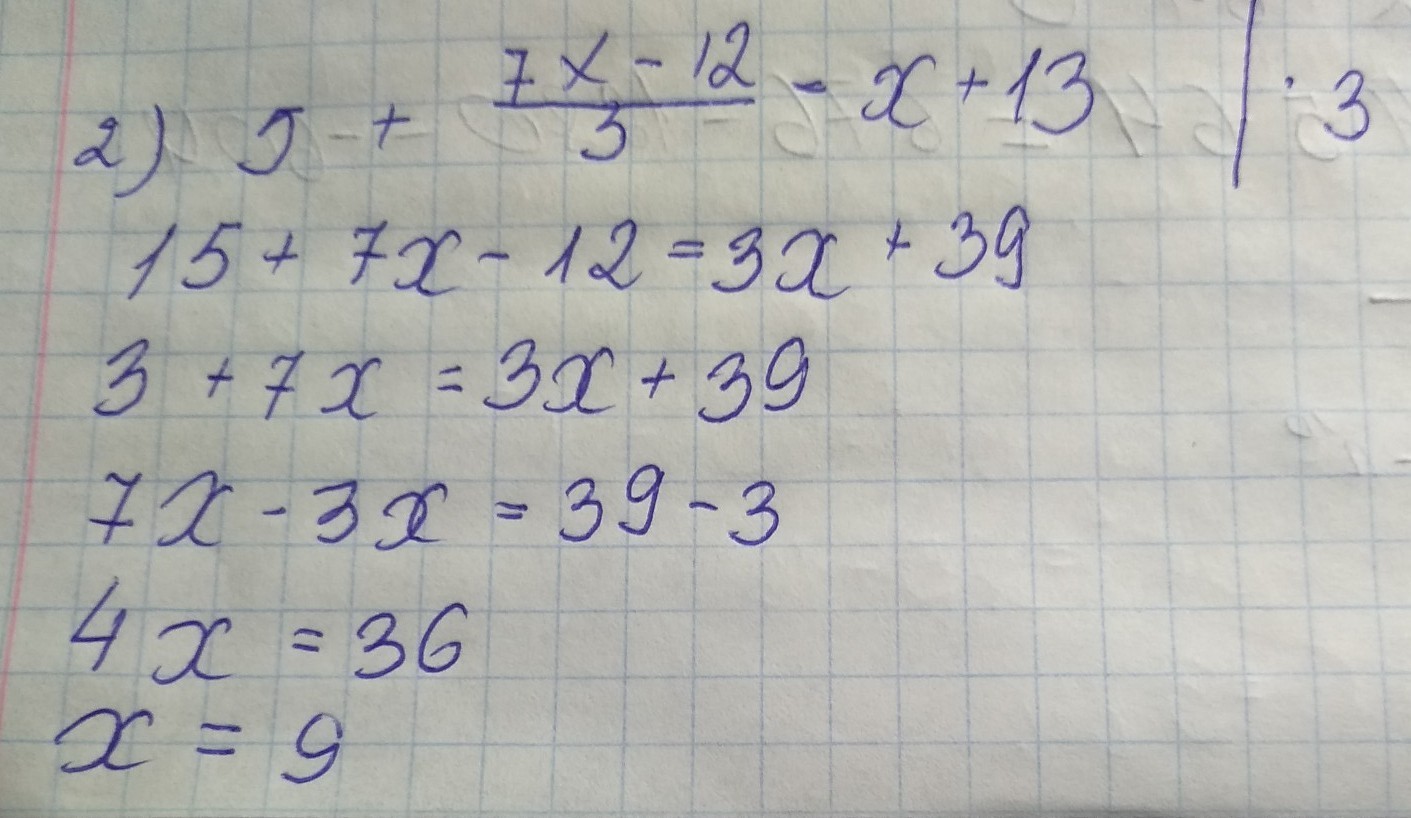 2) 5 + (7x - 12)/3 - x + 13 | · 3
15 + 7x - 12 = 3x + 39
3 + 7x = 3x + 39
7x - 3x = 39 - 3
4x = 36
x = 9